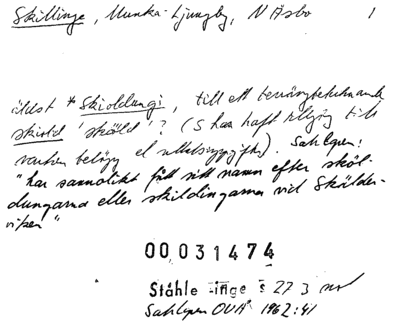 Skillinge, Munka-Ljungby, N Åsbo 1
äldst *Skioldungi, till ett terrängbetecknande
skiold 'sköld'? (S kan haft till
belägg el ). Sahlgren:
"har sannolikt fått sitt namn efter sköl-
dungarna eller skildingarna vid Skälder-
viken"
00,031474
Ståhle -inge s 27 3
Sahlgren OUÅ 1962:41